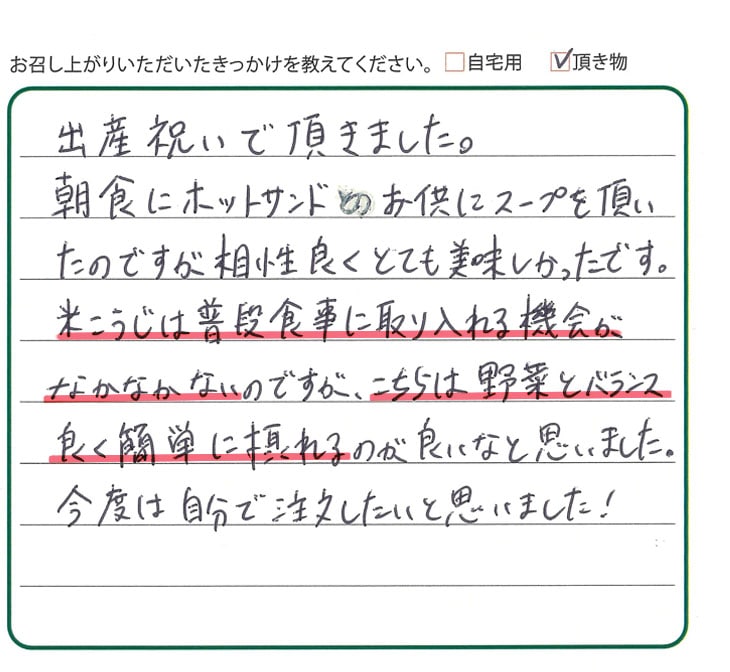 お召し上がりいただいたきっかけを教えてください。 □自宅用 ☑頂き物
出産祝いで頂きました。
朝食にホットサンドのお供にスープを頂い
たのですが相性良くとても美味しかったです。
米こうじは普段食事に取り入れる機会が
なかなかないのですが、こちらは野菜とバランス
良く簡単に摂れるのが良いなと思いました。
今度は自分で注文したいと思いました!